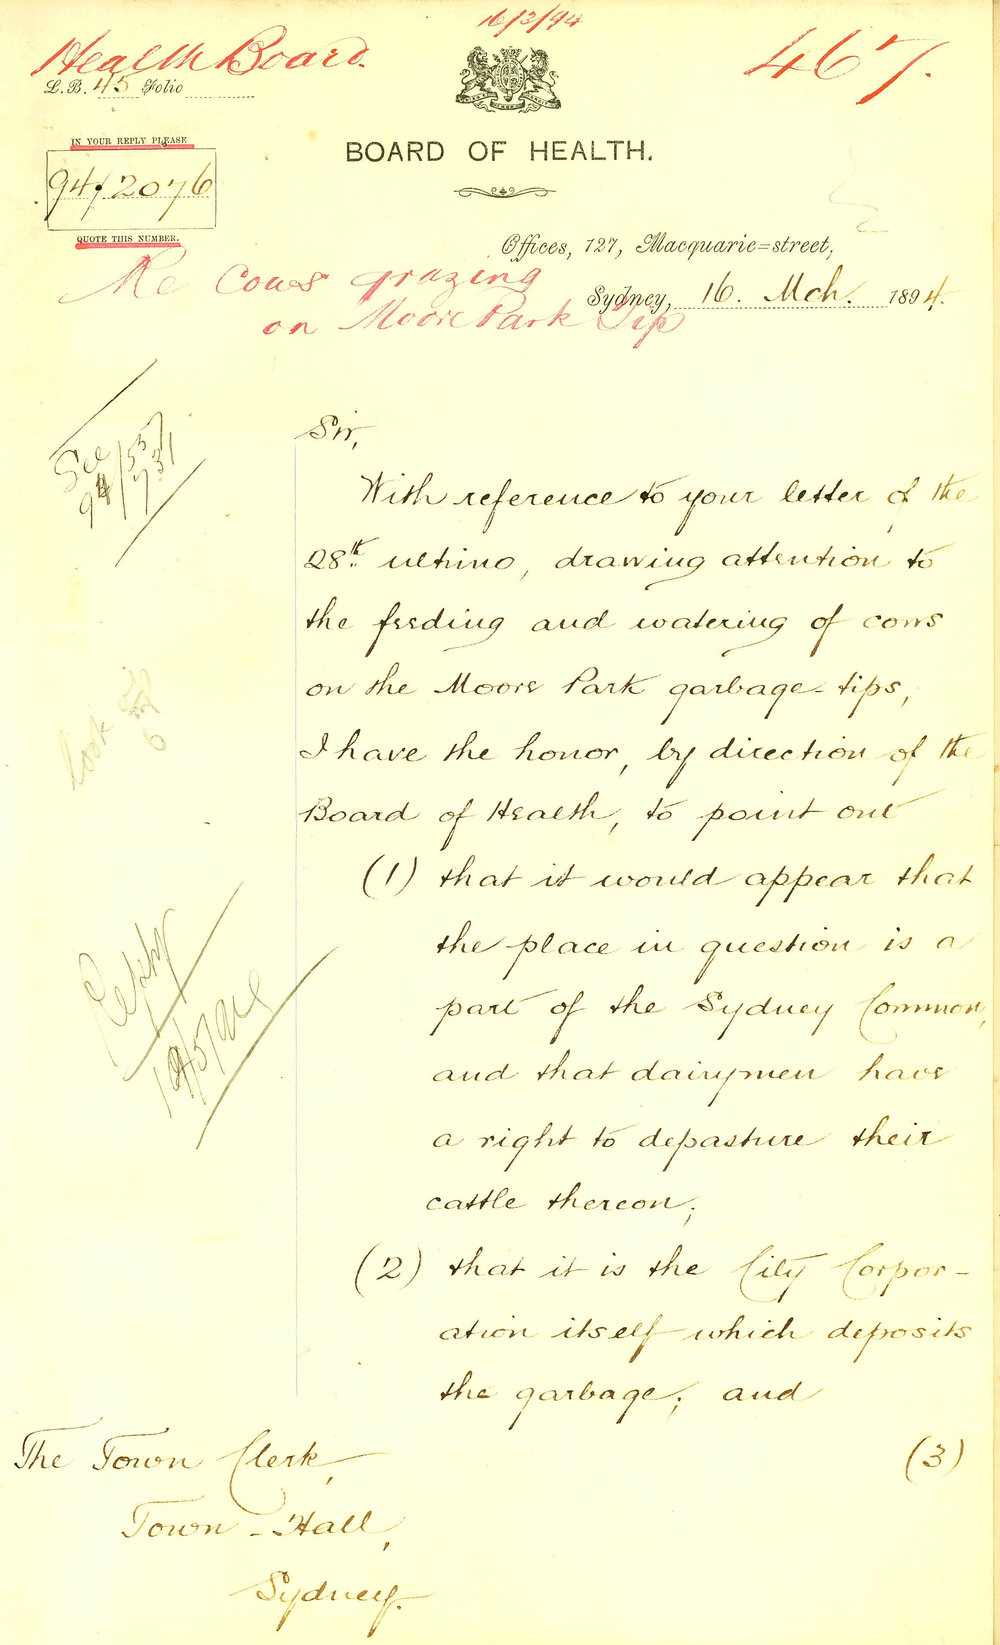 16/3/94
Health Board.
467.
L.B. 45 Folio
IN YOUR REPLY PLEASE
94/2076
QUOTE THIS NUMBER.
BOARD OF HEALTH.
Offices, 127, Macquarie=street,
Sydney, 16. Mch. 1894.
Re Cows grazing
on Moore Park Tip
See
94/537
731
look
6
Reply
Sir,
With reference to your letter of the
28th. ultimo, drawing attention to
the feeding and watering of cows
on the Moore Park garbage-tips,
I have the honor, by direction of the
Board of Health, to point out
(1) that it would appear that
the place in question is a
part of the Sydney Common,
and that dairymen have
a right to depasture their
cattle thereon;
(2) that it is the City Corpor-
ation itself which deposits
the garbage; and
(3)
The Town Clerk,
Town-Hall,
Sydney.